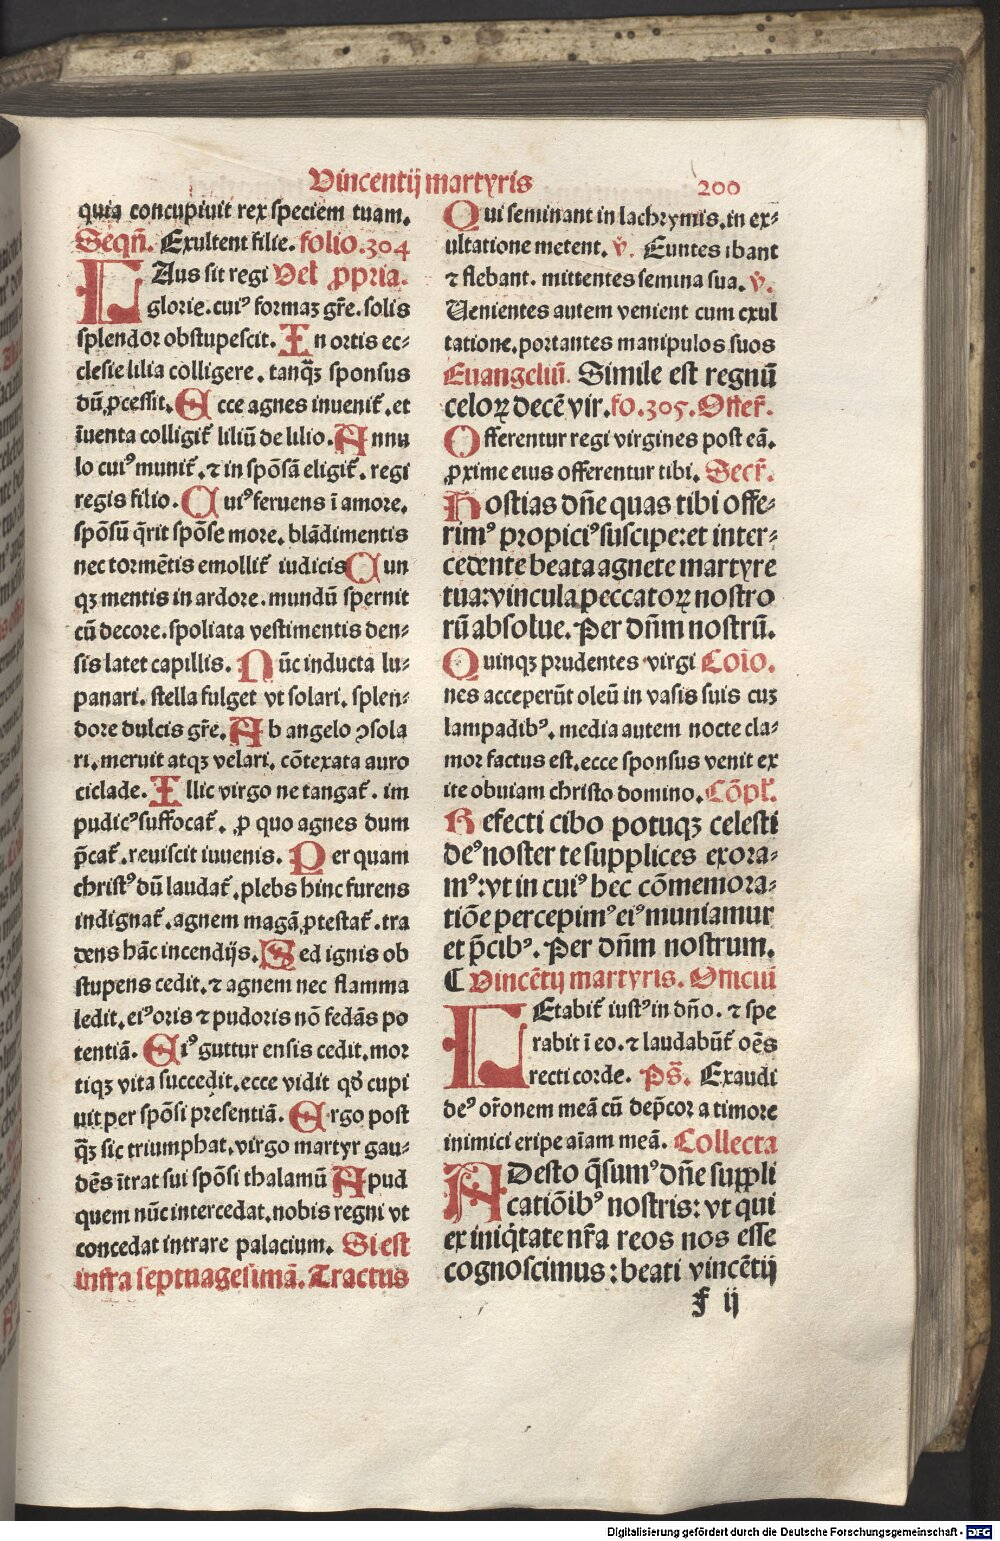 Vincentij martyris
200
quia concupiuit rex speciem tuam.
Seqñ. Exultent filie. folio.304
LAus sit regi Vel ꝓpria.
glorie.cuiꝰ formaꝫ gr̃e.solis
splendor obstupescit. In ortis ec⸗
clesie lilia colligere.tanq̃ꝫ sponsus
dũ ꝓcessit. Ecce agnes inuenit᷑.et
ĩuenta colligit᷑ liliũ de lilio. Annu
lo cuiꝰ munit᷑.⁊ in spõsã eligit᷑.regi
regis filio. Cuiꝰ feruens ĩ amore.
spõsũ q̃rit spõse more.blãdimentis
nec tormẽtis emollit᷑ iudicis Cun
qꝫ mentis in ardore.mundũ spernit
cũ decore.spoliata vestimentis den⸗
sis latet capillis. Nũc inducta lu⸗
panari.stella fulget vt solari.splen⸗
dore dulcis gr̃e. Ab angelo ꝯsola
ri.meruit atqꝫ velari.cõtexata auro
ciclade. Illic virgo ne tangat᷑.im
pudicꝰ suffocat᷑.ꝓ quo agnes dum
p̃cat᷑.reuiscit iuuenis. Per quam
christꝰ dũ laudat᷑.plebs hinc furens
indignat᷑.agnem magã ꝓtestat᷑.tra
dens hãc incendijs. Sed ignis ob
stupens cedit.⁊ agnem nec flamma
ledit.eiꝰ oris ⁊ pudoris nõ fedãs po
tentiã. Eiꝰ guttur ensis cedit.mor
tiqꝫ vita succedit.ecce vidit qđ cupi
uit per spõsi presentiã. Ergo post
q̃ꝫ sic triumphat.virgo martyr gau⸗
dẽs ĩtrat sui spõsi thalamũ Apud
quem nũc intercedat.nobis regni vt
concedat intrare palacium. Si est
infra septuagesimã. Tractus
Qui seminant in lachrymis.in ex⸗
ultatione metent. ℣. Euntes ibant
⁊ flebant. mittentes semina sua. ℣.
Uenientes autem venient cum exul
tatione.portantes manipulos suos
Euangeliũ. Simile est regnũ
celoꝝ decẽ vir. fo.305. Offer̃.
Offerentur regi virgines post eã.
ꝓxime eius offerentur tibi. Secr̃.
Hostias dñe quas tibi offe⸗
rimꝰ propiciꝰ suscipe:et inter⸗
cedente beata agnete martyre
tua:vincula peccatoꝝ nostro
rũ absolue. Per dñm nostrũ.
Quinqꝫ prudentes virgi Coĩo.
nes acceperũt oleũ in vasis suis cuꝫ
lampadibꝰ. media autem nocte cla⸗
mor factus est.ecce sponsus venit ex
ite obuiam christo domino. Cõpl᷑.
Refecti cibo potuqꝫ celesti
deꝰ noster te supplices exora⸗
mꝰ:vt in cuiꝰ hec cõmemora⸗
tiõe percepimꝰ eiꝰ muniamur
et p̃cibꝰ. Per dñm nostrum.
¶ Vincẽtij martyris. Officiũ
LEtabit᷑ iustꝰ in dño. ⁊ spe
rabit ĩ eo.⁊ laudabũt᷑ oẽs
recti corde. Ps̃. Exaudi
deꝰ or̃onem meã cũ dep̃cor a timore
inimici eripe aĩam meã. Collecta
ADesto q̃sumꝰ dñe suppli
catiõibꝰ nostris: vt qui
ex iniq̃tate nr̃a reos nos esse
cognoscimus: beati vincẽtij
f ij
Digitalisierung gefördert durch die Deutsche Forschungsgemeinschaft - DFG